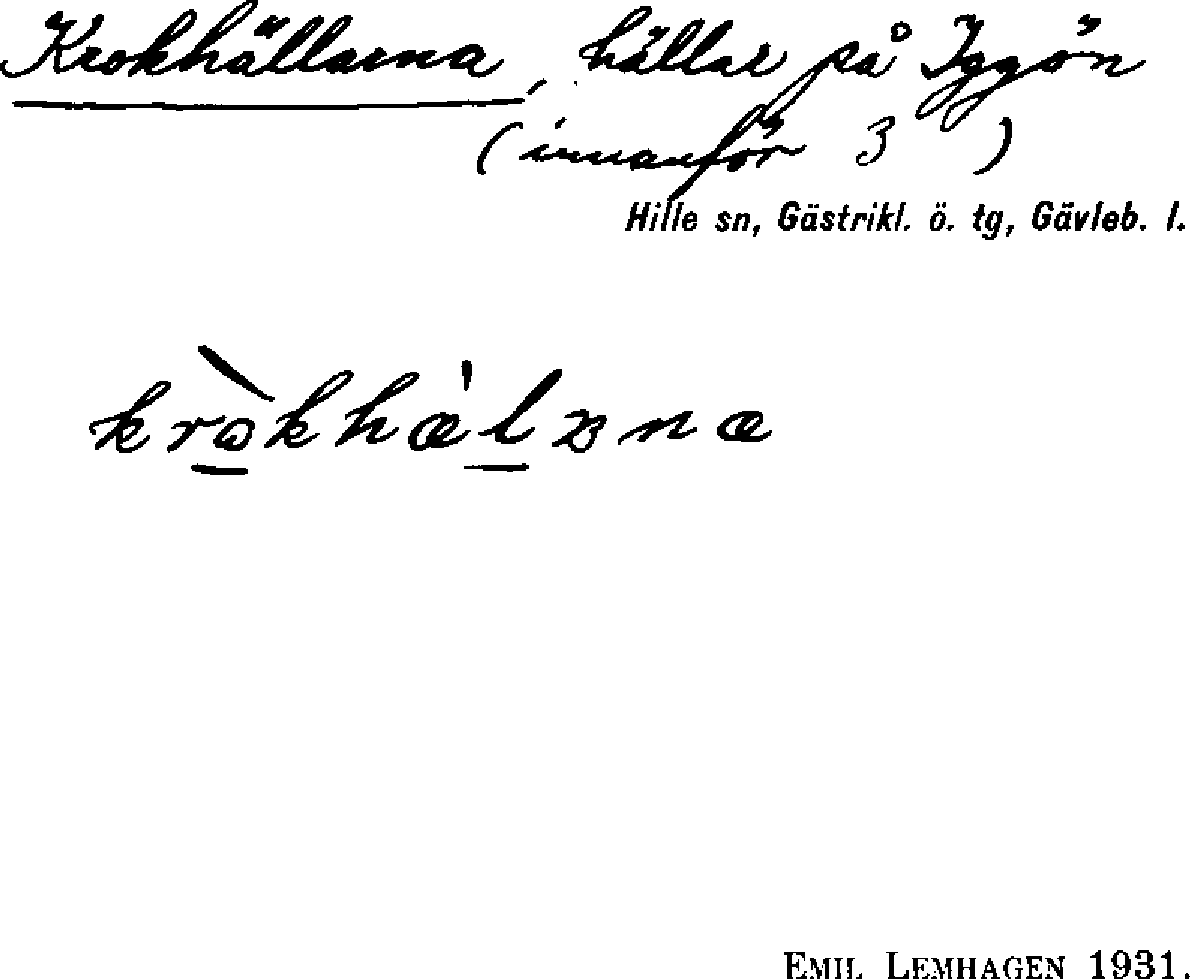 Krokhällarna, hällar på Iggön
(innanför 3 )
Hille sn, Gästrikl. ö. tg, Gävleb. l.
EMIL LEMHAGEN 1931.